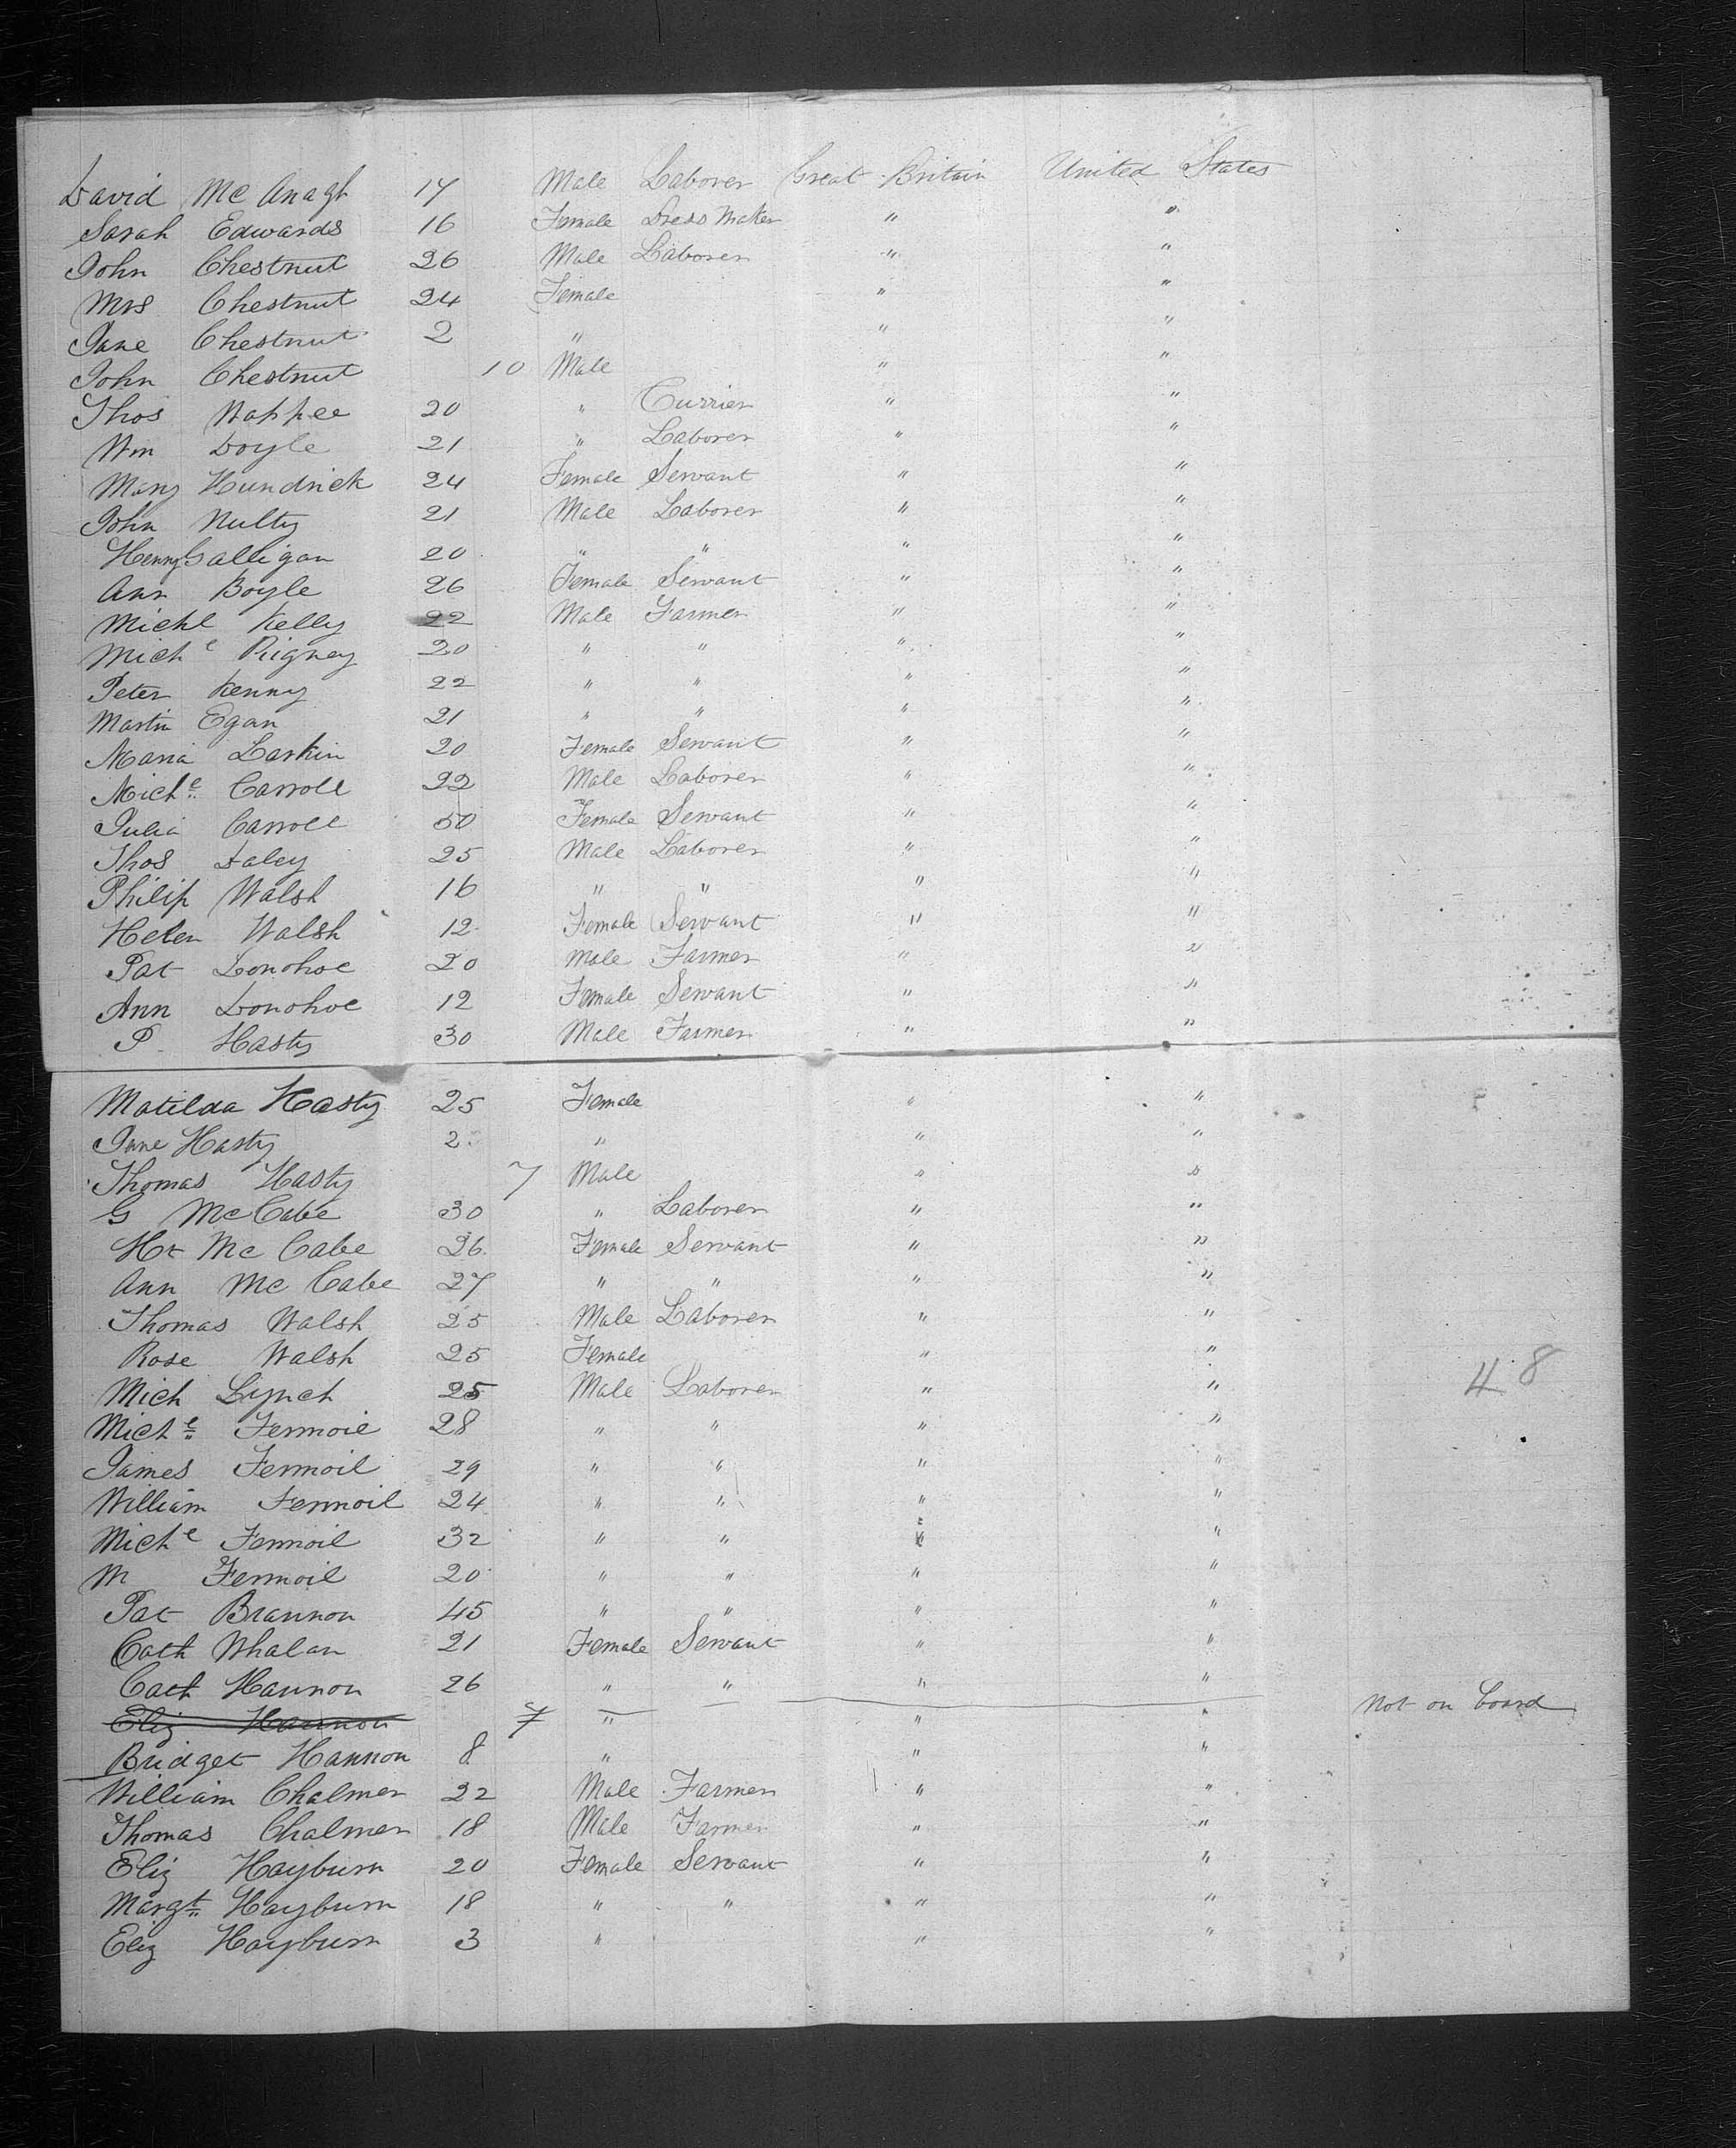 David Mc Anagh 17 Male Laborer Great Britain United States
Sarah Edwards 16 Female Dress Maker " "
John Chestnut 26 Male Laborer " "
Mrs Chestnut 24 Female " "
Jane Chestnut 2 " " "
John Chestnut 10 Male " "
Thos 20 " Currier " "
Wm Doyle 21 " Laborer " "
Mary Hundrick 24 Female Servant " "
John Nulty 21 Male Laborer " "
Henry Galligan 20 " " " "
Ann Boyle 26 Female Servant " "
Michl Kelly 22 Male Farmer " "
Michl Rigney 20 " " " "
Peter Kenny 22 " " " "
Martin Egan 21 " " " "
Maria Larkin 20 Female Servant " "
Michl Carroll 22 Male Laborer " "
Julia Carroll 50 Female Servant " "
Thos Daley 25 Male Laborer " "
Philip Walsh 16 " " " "
Helen Walsh 12 Female Servant " "
Pat Donohoe 20 Male Farmer " "
Ann Donohoe 12 Female Servant " "
P Hasty 30 Male Farmer " "
Matilda Hasty 25 Female " "
Jane Hasty 2 " " "
Thomas Hasty 7 Male " "
G McCabe 30 " Laborer " "
Mc Cabe 26 Female Servant " "
Ann Mc Cabe 27 " " " "
Thomas Walsh 25 Male Laborer " "
Rose Walsh 25 Female " "
Mich Lynch 25 Male Laborer " " 48
Michl Fermoil 28 " " " "
James Fermoil 29 " " " "
William Fermoil 24 " " " "
Michl Fermoil 32 " " " "
M Fermoil 20 " " " "
Pat Brannon 45 " " " "
Cath Whalan 21 Female Servant " "
Cath Hannon 26 " " " "
Eliz Hannon 7 " " " Not on board
Bridget Hannon 8 " " "
William Chalmer 22 Male Farmer " "
Thomas Chalmer 18 Male Farmer " "
Eliz Hayburn 20 Female Servant " "
Margt Hayburn 18 " " " "
Eliz Hayburn 3 " " "